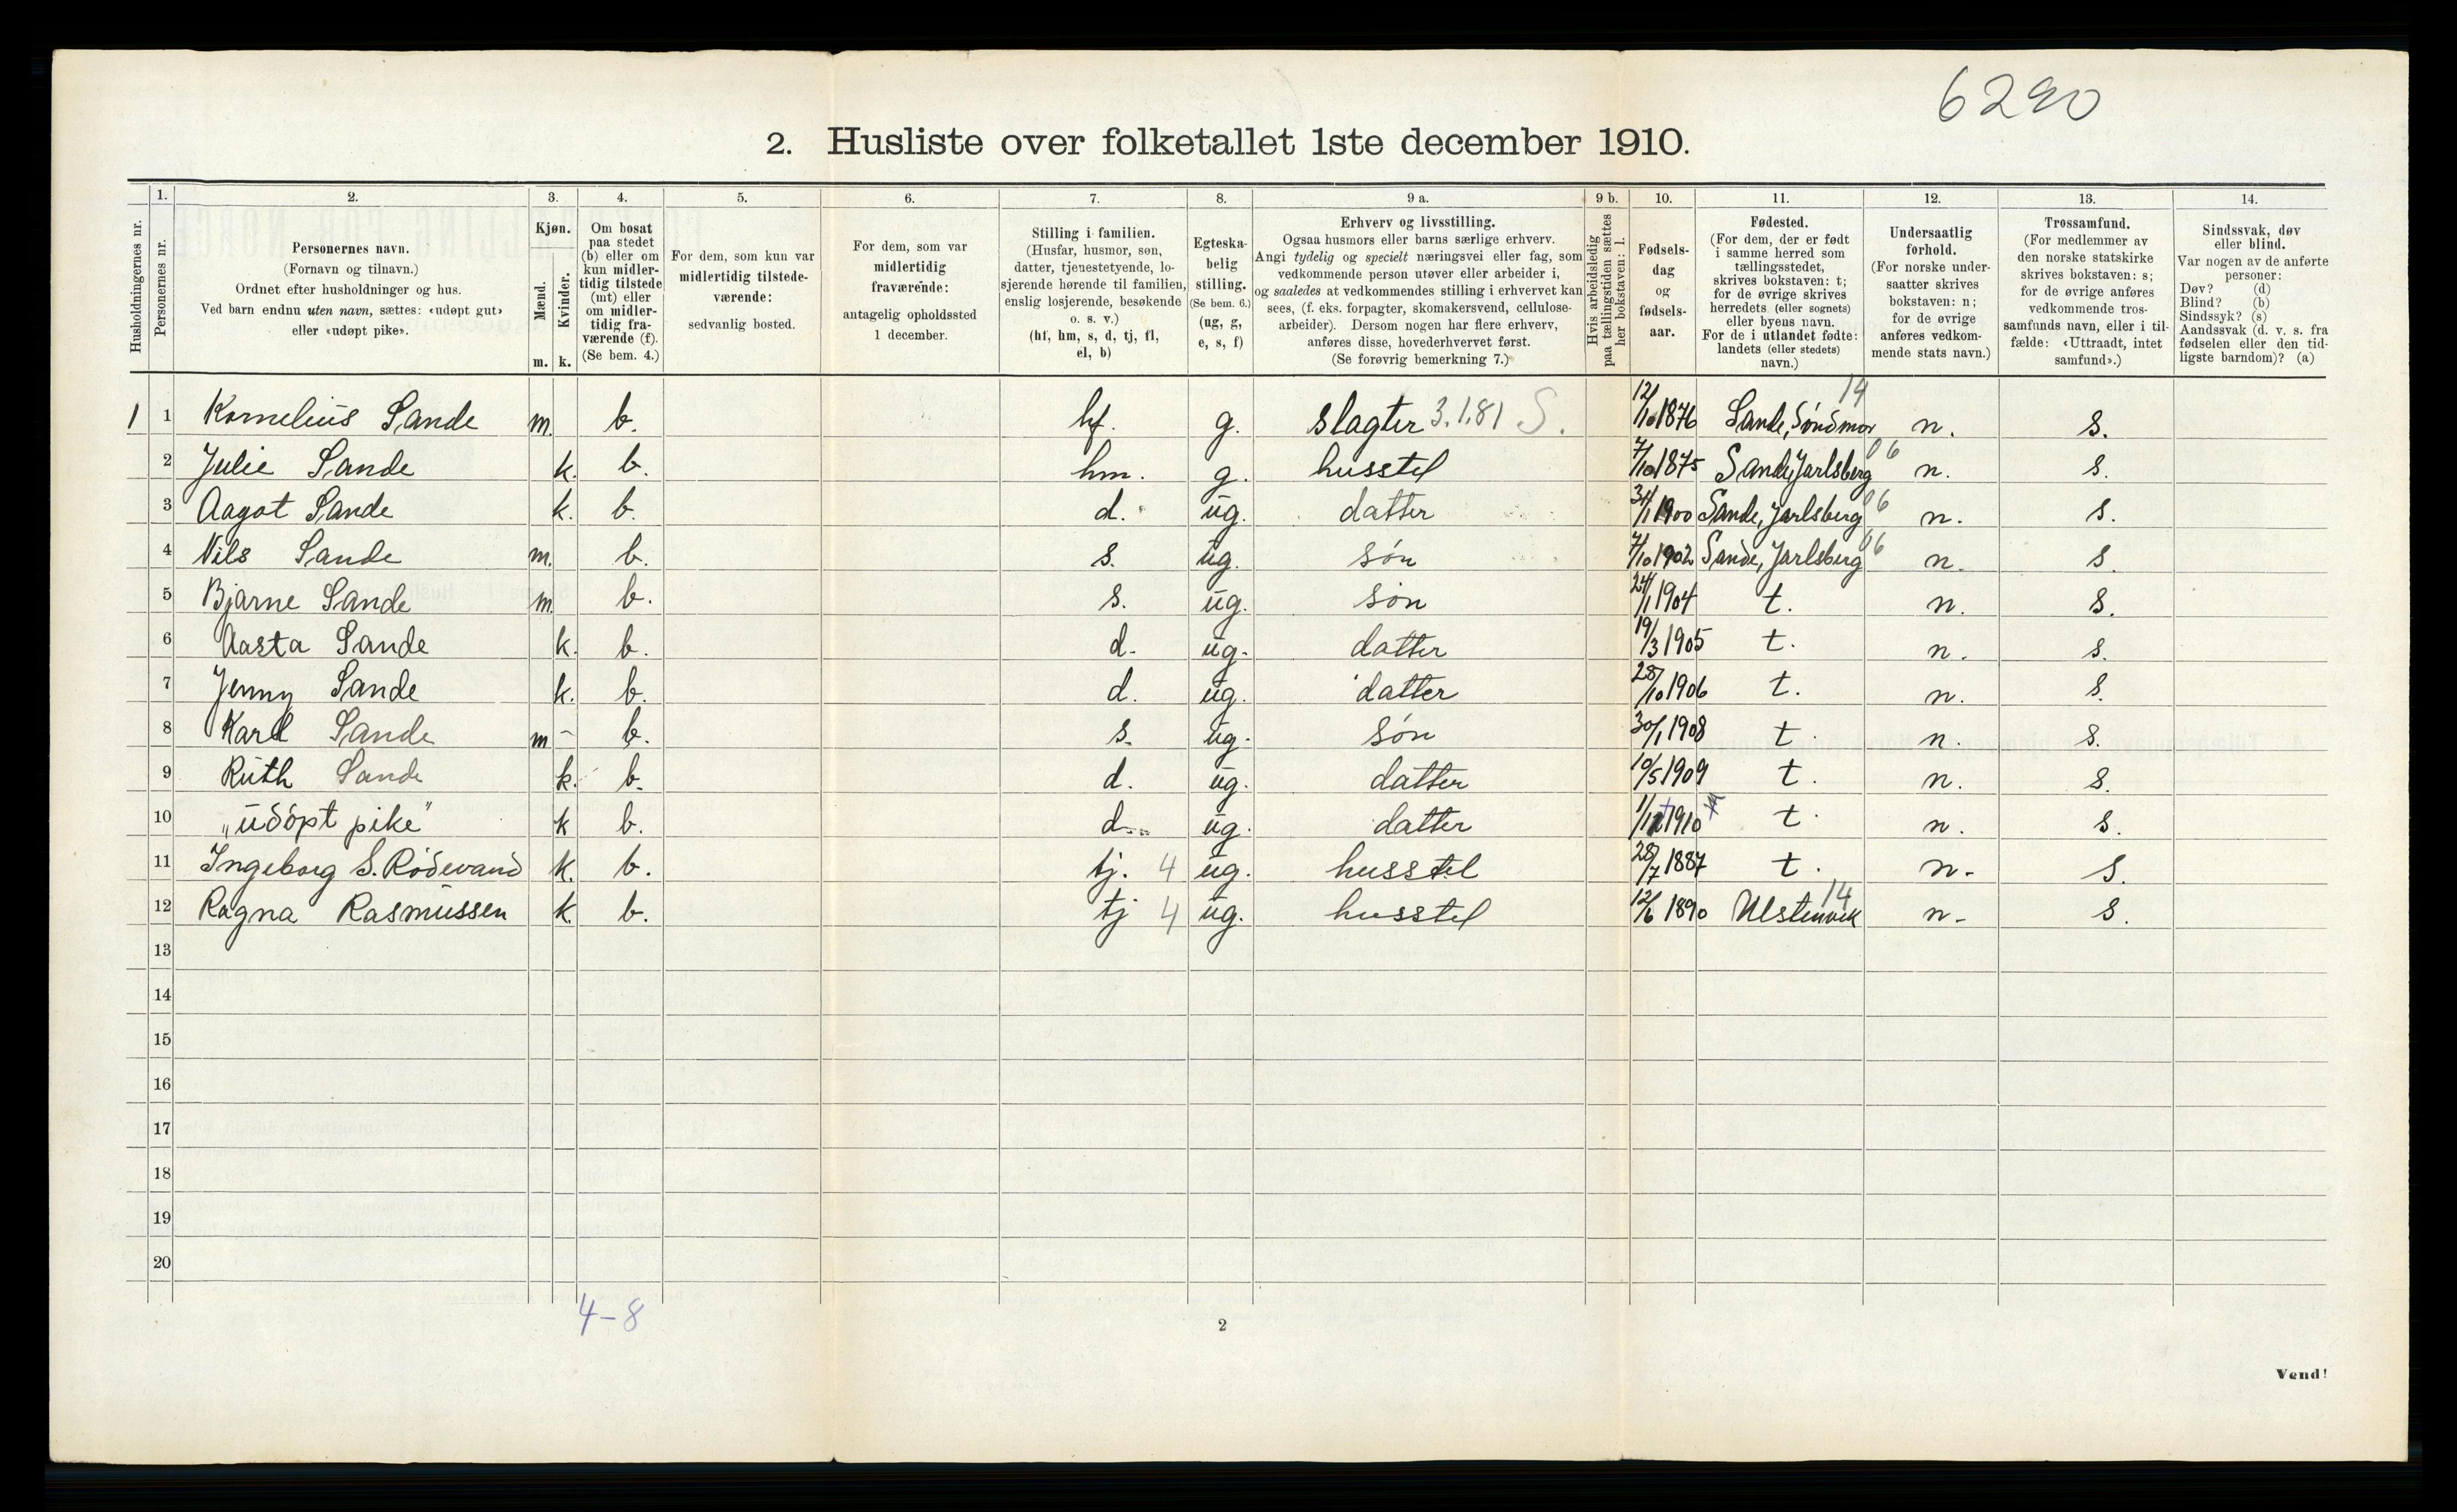 6290
2. Husliste over folketallet 1ste december 1910.
Husholdningernes nr.
1.
Personernes nr.
2.
Personernes navn.
(Fornavn og tilnavn.)
Ordnet efter husholdninger og hus.
Ved barn endnu uten navn, sættes: «udøpt gut»
eller «udøpt pike».
3.
Kjøn.
Mænd.
Kvinder.
m. k.
4.
Om bosat
paa stedet
(b) eller om
kun midler-
tidig tilstede
(mt) eller
om midler-
tidig fra-
værende (f).
(Se bem. 4.)
5.
For dem, som kun var
midlertidig tilstede-
værende:
sedvanlig bosted.
6.
For dem, som var
midlertidig
fraværende:
antagelig opholdssted
1 december.
7.
Stilling i familien.
(Husfar, husmor, søn,
datter, tjenestetyende, lo-
sjerende hørende til familien,
enslig losjerende, besøkende
o. s. v.)
(hf, hm, s, d, tj, fl,
el, b)
8.
Egteska-
belig
stilling.
(Se bem. 6.)
(ug, g,
e, s, f)
9 a.
Erhverv og livsstilling.
Ogsaa husmors eller barns særlige erhverv.
Angi tydelig og specielt næringsvei eller fag, som
vedkommende person utøver eller arbeider i,
og saaledes at vedkommendes stilling i erhvervet kan
sees, (f. eks. forpagter, skomakersvend, cellulose-
arbeider). Dersom nogen har flere erhverv,
anføres disse, hovederhvervet først.
(Se forøvrig bemerkning 7.)
9 b.
Hvis arbeidsledig
paa tællingstiden sættes
her bokstaven: l.
10.
Fødsels-
dag
og
fødsels-
aar.
11.
Fødested.
(For dem, der er født
i samme herred som
tællingsstedet,
skrives bokstaven: t;
for de øvrige skrives
herredets (eller sognets)
eller byens navn.
For de i utlandet fødte:
landets (eller stedets)
navn.)
12.
Undersaatlig
forhold.
(For norske under-
saatter skrives
bokstaven: n;
for de øvrige
anføres vedkom-
mende stats navn.)
13.
Trossamfund.
(For medlemmer av
den norske statskirke
skrives bokstaven: s;
for de øvrige anføres
vedkommende tros-
samfunds navn, eller i til-
fælde: «Uttraadt, intet
samfund».)
14.
Sindssvak, døv
eller blind.
Var nogen av de anførte
personer:
Døv? (d)
Blind? (b)
Sindssyk? (s)
Aandssvak (d. v. s. fra
fødselen eller den tid-
ligste barndom)? (a)
1 1 Kornelius Sande m. b. hf. g. slagter 3.1.81 S. 12/10 1876 Sande, Søndmør 14 n. s.
2 Julie Sande k. b. hm. g. husstel 7/10 1875 Sande, Jarlsberg 06 n. s.
3 Aagot Sande k. b. d. ug. datter 1900 Sande, Jarlsberg 06 n. s.
4 Nils Sande m. b. s. ug. søn 7/10 1902 Sande, Jarlsberg 06 n. s.
5 Bjarne Sande m. b. s. ug. søn 24/1 1904 t. n. s.
6 Aasta Sande k. b. d. ug. datter 19/3 1905 t. n. s.
7 Jenny Sande k. b. d. ug. datter 28/10 1906 t. n. s.
8 Karl Sande m b. s. ug. søn 30/1 1908 t n. s.
9 Ruth Sande k. b. d. ug. datter 10/5 1909 t. n. s.
10 „udøpt pike" k b. d. ug. datter 1910 t n. s.
11 Ingeborg S. Rødevand k. b. tj. 4 ug. husstel 28/7 1887 t. n. s.
12 Ragna Rasmussen k. b. tj 4 ug. husstel 12/6 1890 Ulstenvik 14 n. s.
13
14
15
16
17
18
19
20
4-8
2
Vend!